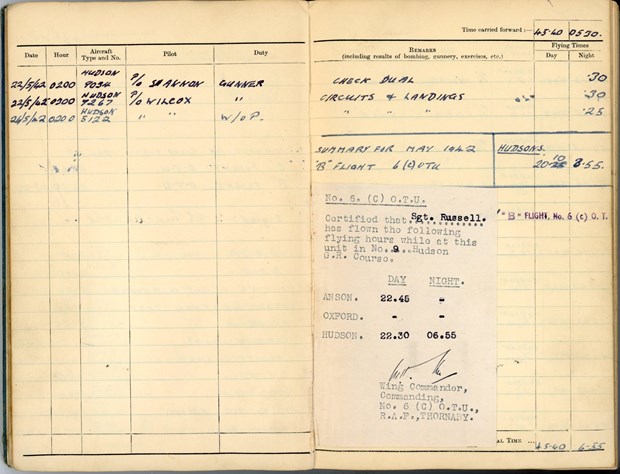 Date Hour Aircraft Type and No. Pilot Duty
22/5/42 0200 HUDSON 9034 P/O SHANNON GUNNER
22/5/42 0300 HUDSON 7267 P/O WILCOX "
24/5/42 0200 HUDSON 5122 " " W/OP.
Time carried forward :— 45·40 05·30
REMARKS
(including results of bombing, gunnery, exercises, etc.)
Flying Times
Day Night
CHECK DUAL ·30
CIRCUITS & LANDINGS ·30
" " " ·25
SUMMARY FOR MAY 1942 HUDSONS.
"B" FLIGHT 6 (C) OTU 20 10 8·55.
No. 6. (C) O.T.U.
Certified that Sgt. Russell.
has flown the following
flying hours while at this
unit in No. 9 Hudson
G.R. Course.
DAY NIGHT.
ANSON. 22.45 -
OXFORD. - -
HUDSON. 22.30 06.55
Wing Commander,
Commanding,
No. 6 (C) O.T.U.,
R.A.F., THORNABY.
"B" FLIGHT, No. 6 (C) O. T.
AL TIME ... 45·40 6·55